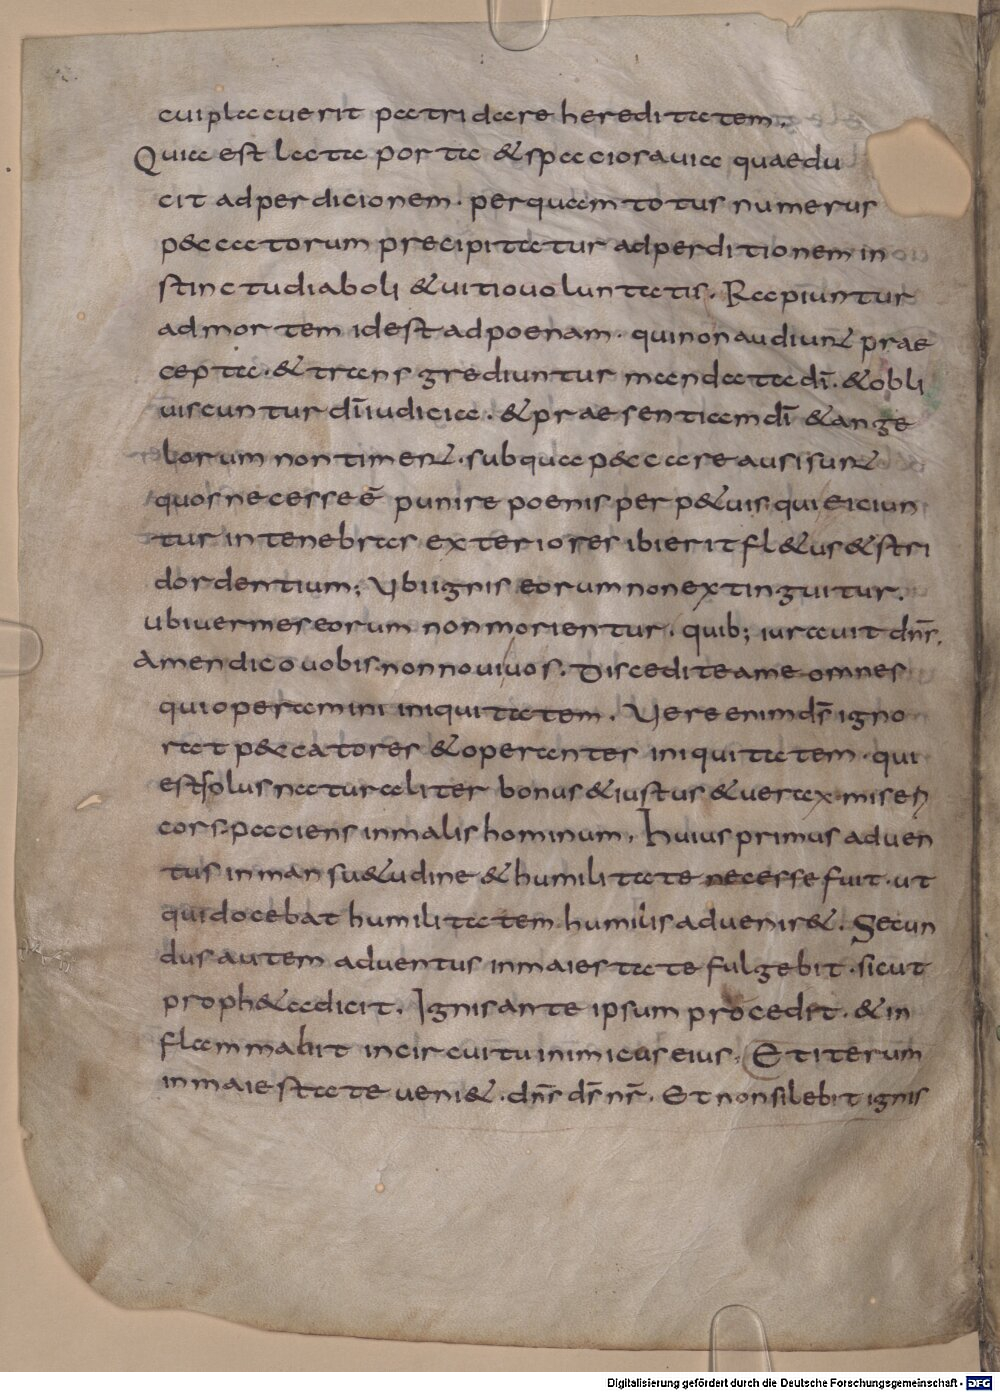 cui placuerit patri dare hereditatem.
Quia est lata porta & speciosa uia quae du
cit ad perdicionem. per quam totus numerus
p&catorum precipitatur ad perditionem in
stinctu diaboli & uitio uoluntatis. Rapiuntur
ad mortem id est ad poenam. qui non audiunt prae
cepta. & transgrediuntur mandata dī. & obli
uiscuntur dī iudicia. & praesentiam dī & ange
lorum non timent. sub qua p&ccare ausi sunt
quos necesse ē punire poenis perp&uis qui eiciun
tur in tenebras exteriores ibi erit fl&us & stri
dor dentium; Vbi ignis eorum non extinguitur.
ubi uermes eorum non morientur. quib; iurauit dn̄s.
Amen dico uobis non noui uos. Discedite a me omnes
qui operamini iniquitatem. Vere enim ds̄ igno
rat p&ccatores & operantes iniquitatem. qui
est solus naturaliter bonus & iustus & uerax. miseri
cors. paciens in malis hominum. Huius primus aduen
tus in mansu&udine & humilitate necesse fuit. ut
qui docebat humilitatem humilis adueniret. Secun
dus autem aduentus in maiestate fulgebit. sicut
proph&a dicit. Ignis ante ipsum procedit. & in
flammabit in circuitu inimicus eius. Et iterum
in maiestate ueni&. dn̄s ds̄ nr̄. Et non silebit ignis
Digitalisierung gefördert durch die Deutsche Forschungsgemeinschaft - DFG